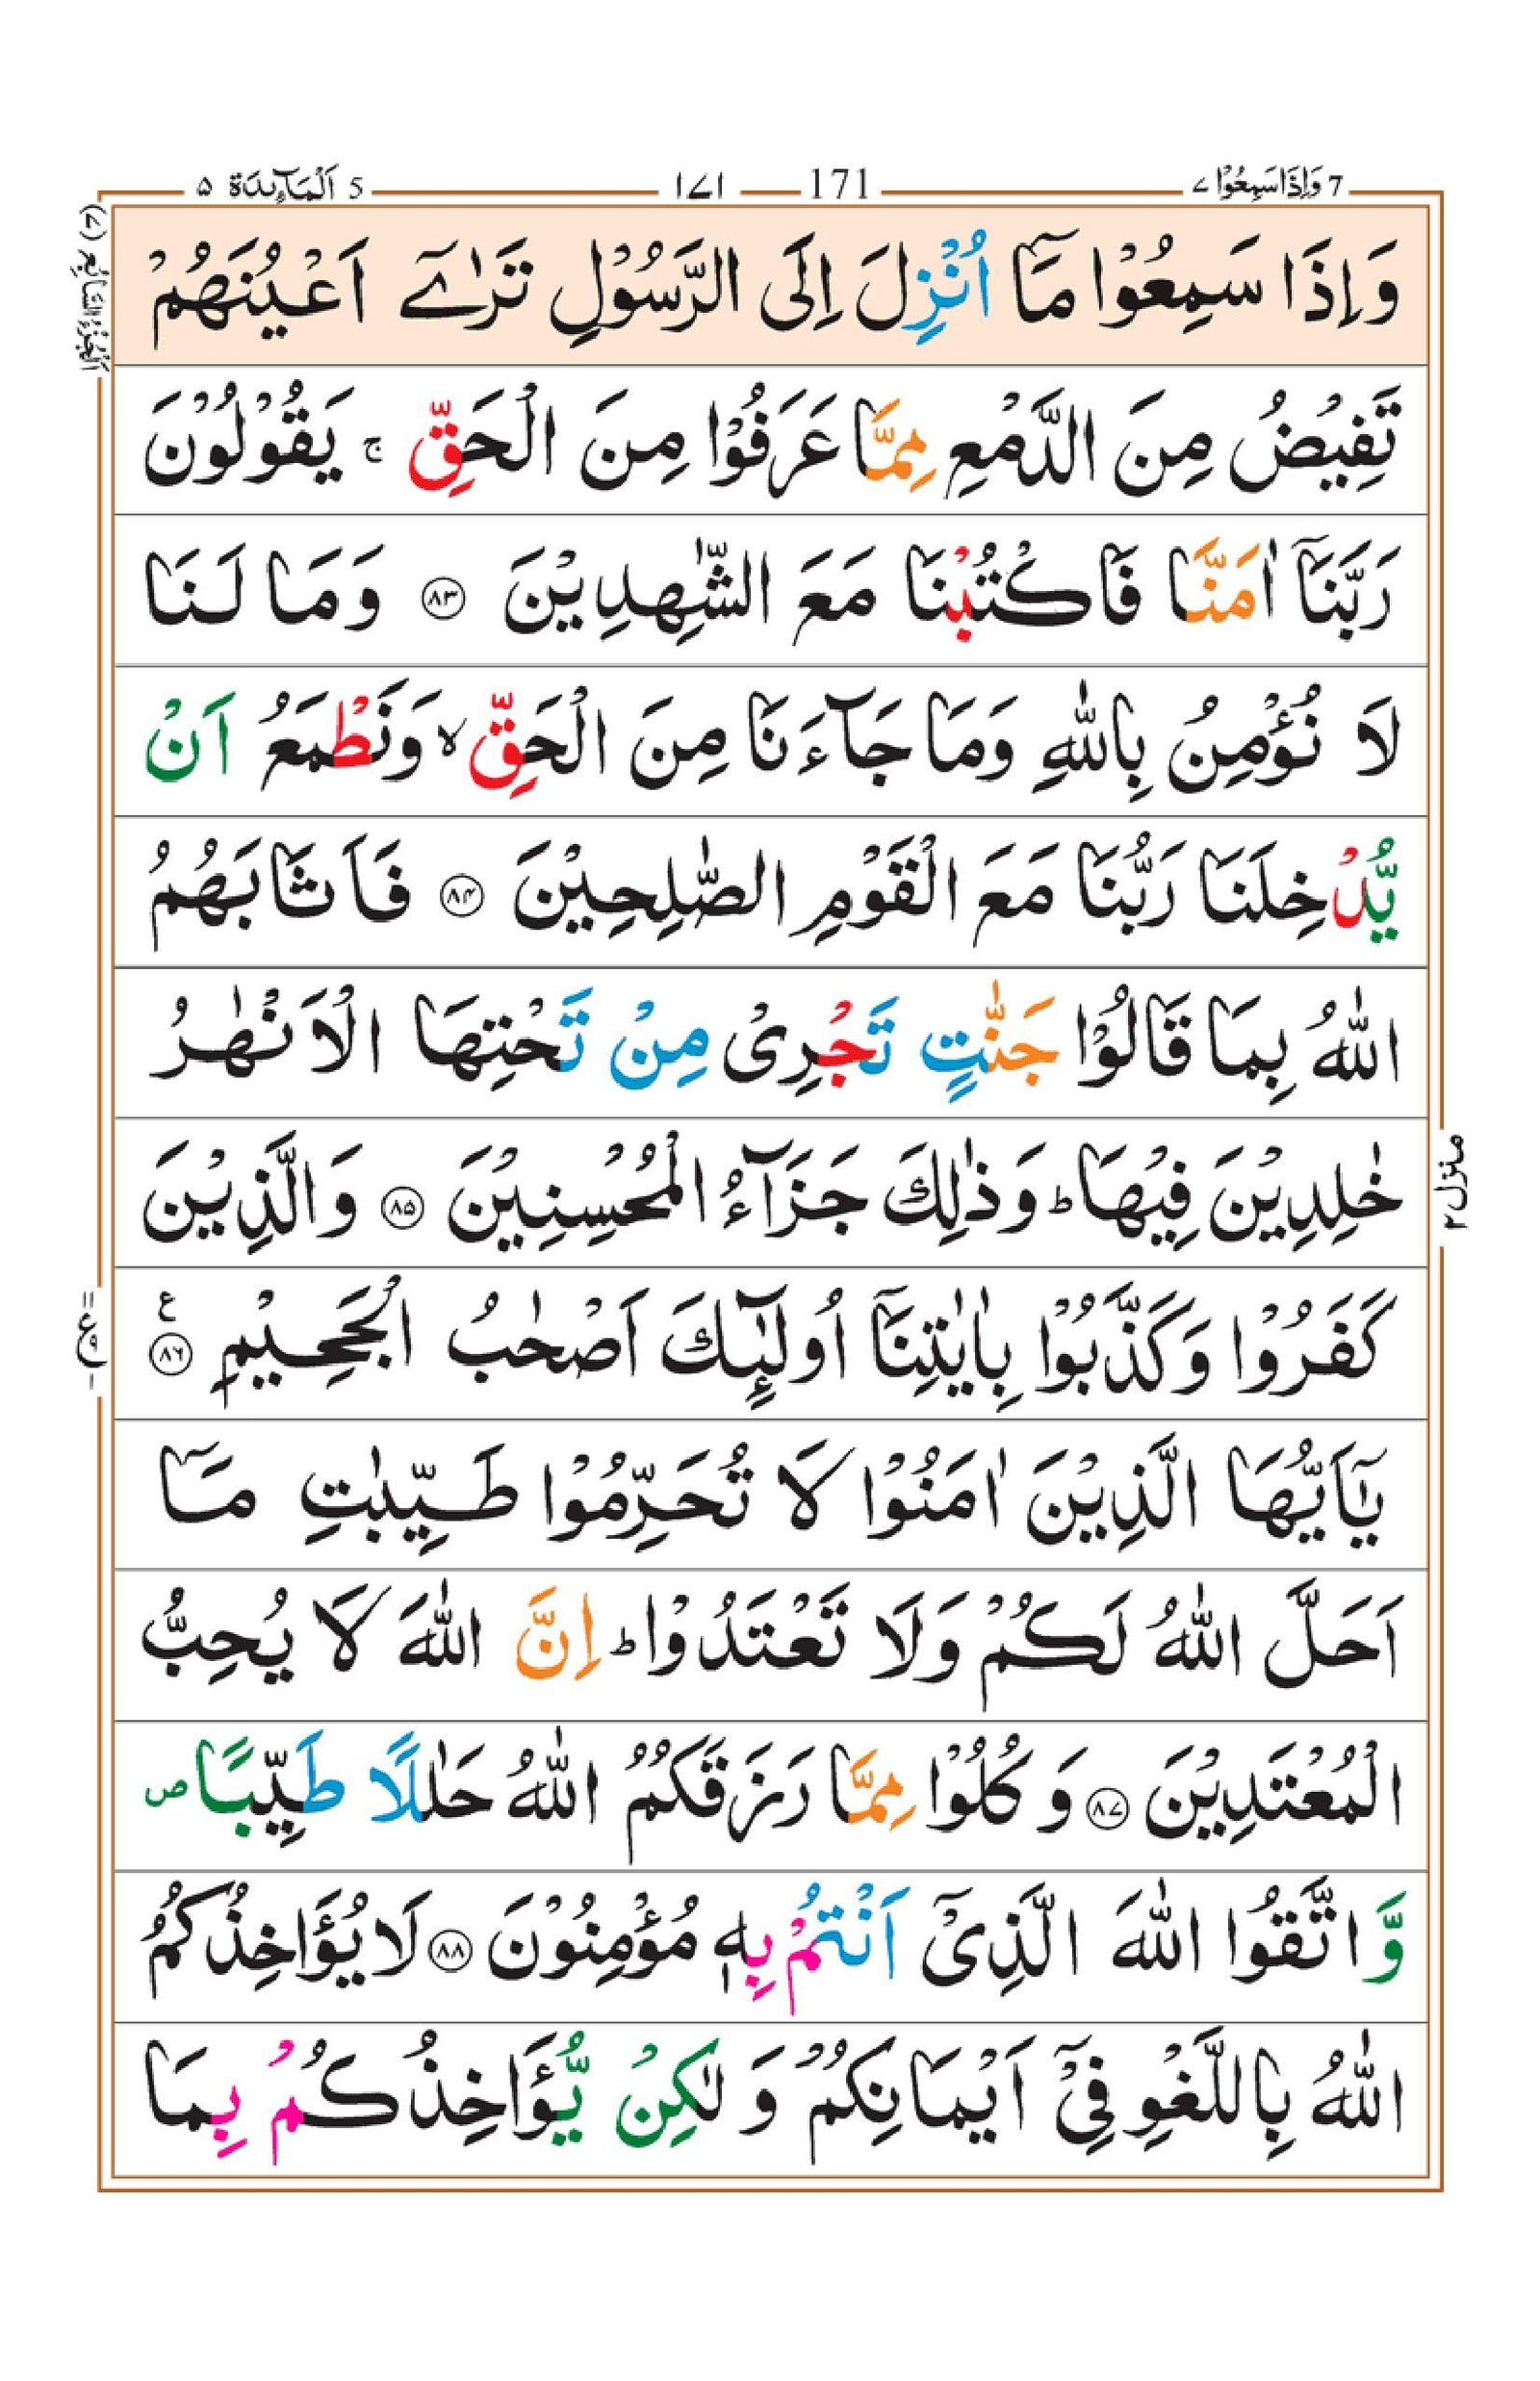 7 وَاِذَا سَمِعُوْا ۷ 171 ۱۷۱ 5 اَلْمَآىِٕدَة ۵
اَلْجُزْءُ السَّابِع (۷)
وَاِذَا سَمِعُوْا مَآ اُنْزِلَ اِلَى الرَّسُوْلِ تَرٰٓى اَعْيُنَهُمْ
تَفِيْضُ مِنَ الدَّمْعِ مِمَّا عَرَفُوْا مِنَ الْحَقِّ ۚ يَقُوْلُوْنَ
رَبَّنَآ اٰمَنَّا فَاكْتُبْنَا مَعَ الشّٰهِدِيْنَ ۸۳ وَمَا لَنَا
لَا نُؤْمِنُ بِاللّٰهِ وَمَا جَآءَنَا مِنَ الْحَقِّ ۙ وَنَطْمَعُ اَنْ
يُّدْخِلَنَا رَبُّنَا مَعَ الْقَوْمِ الصّٰلِحِيْنَ ۸۴ فَاَثَابَهُمُ
اللّٰهُ بِمَا قَالُوْا جَنّٰتٍ تَجْرِىْ مِنْ تَحْتِهَا الْاَنْهٰرُ
خٰلِدِيْنَ فِيْهَا ؕ وَذٰلِكَ جَزَآءُ الْمُحْسِنِيْنَ ۸۵ وَالَّذِيْنَ
كَفَرُوْا وَكَذَّبُوْا بِاٰيٰتِنَآ اُولٰٓئِكَ اَصْحٰبُ الْجَحِيْمِ ۸۶ ع
يٰٓاَيُّهَا الَّذِيْنَ اٰمَنُوْا لَا تُحَرِّمُوْا طَيِّبٰتِ مَآ
اَحَلَّ اللّٰهُ لَكُمْ وَلَا تَعْتَدُوْا ؕ اِنَّ اللّٰهَ لَا يُحِبُّ
الْمُعْتَدِيْنَ ۸۷ وَكُلُوْا مِمَّا رَزَقَكُمُ اللّٰهُ حَلٰلًا طَيِّبًا ۖ
وَّاتَّقُوا اللّٰهَ الَّذِىْٓ اَنْتُمْ بِهٖ مُؤْمِنُوْنَ ۸۸ لَا يُؤَاخِذُكُمُ
اللّٰهُ بِاللَّغْوِ فِىْٓ اَيْمَانِكُمْ وَلٰكِنْ يُّؤَاخِذُكُمْ بِمَا
منزل ۲